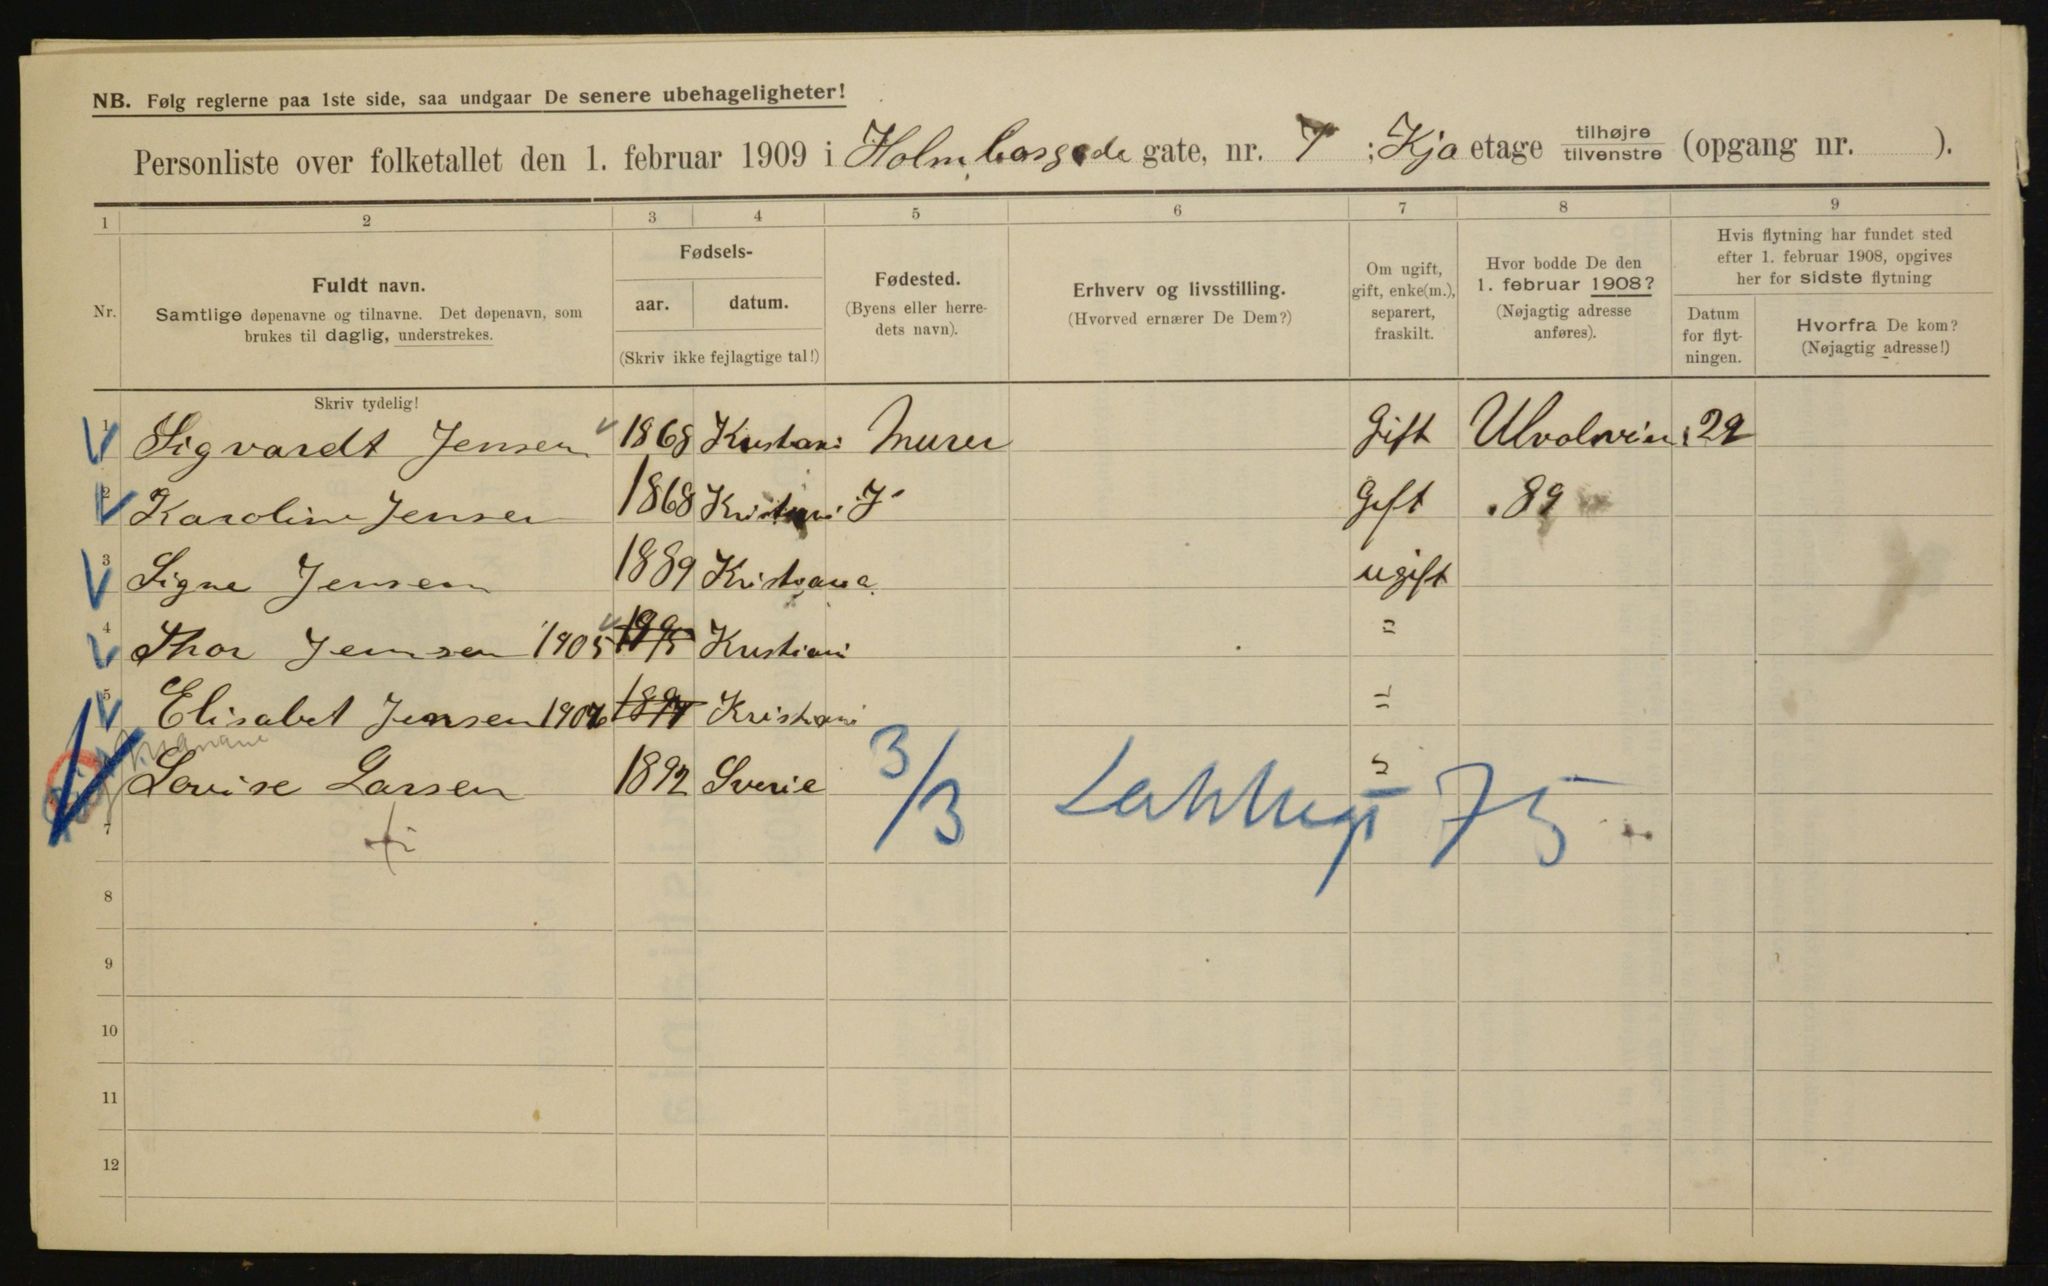 NB. Følg reglerne paa 1ste side, saa undgaar De senere ubehageligheter!
Personliste over folketallet den 1. februar 1909 i Holmbosgade gate, nr. 7 ; Kja etage tilhøjre tilvenstre (opgang nr. ).
1 2 3 4 5 6 7 8 9
Nr.
Fuldt navn.
Samtlige døpenavne og tilnavne. Det døpenavn, som
brukes til daglig, understrekes.
Fødsels-
aar. datum.
(Skriv ikke fejlagtige tal!)
Fødested.
(Byens eller herre-
dets navn).
Erhverv og livsstilling.
(Hvorved ernærer De Dem?)
Om ugift,
gift, enke(m.),
separert,
fraskilt.
Hvor bodde De den
1. februar 1908?
(Nøjagtig adresse
anføres).
Hvis flytning har fundet sted
efter 1. februar 1908, opgives
her for sidste flytning
Datum
for flyt-
ningen.
Hvorfra De kom?
(Nøjagtig adresse!)
Skriv tydelig!
1 Sigvardt Jensen 1868 Kristani Murer Gift 29
2 Karoline Jensen 1868 Kristiani Gift . 89
3 Signe Jensen 1889 Kristiana ugift
4 Thor Jensen 1905 Kristiani "
5 Elisabet Jensen 1906 Kristiani "
Lovise Larsen 1892 Sverie "
3/3 75
7
8
9
10
11
12